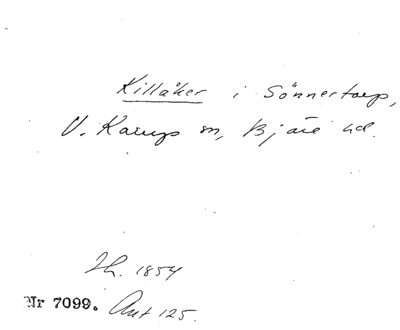 Killåker i Sönnertorp,
V. Karups sn, Bjäre hd.
Jh. 1854
Nr 7099. Ant 125.